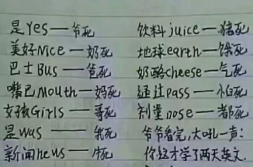 是Yes—爷死
美好Nice—奶死
巴士Bus—爸死
嘴巴Mouth—妈死
女孩Girls—哥死
是was—我死
新闻news—牛死
饮料juice—猪死
地球earth—饿死
奶酪cheese—气死
通过pass—怕死
制鼻nose—都死
爷爷看完,大吼一声:
你这才学了两天英文.